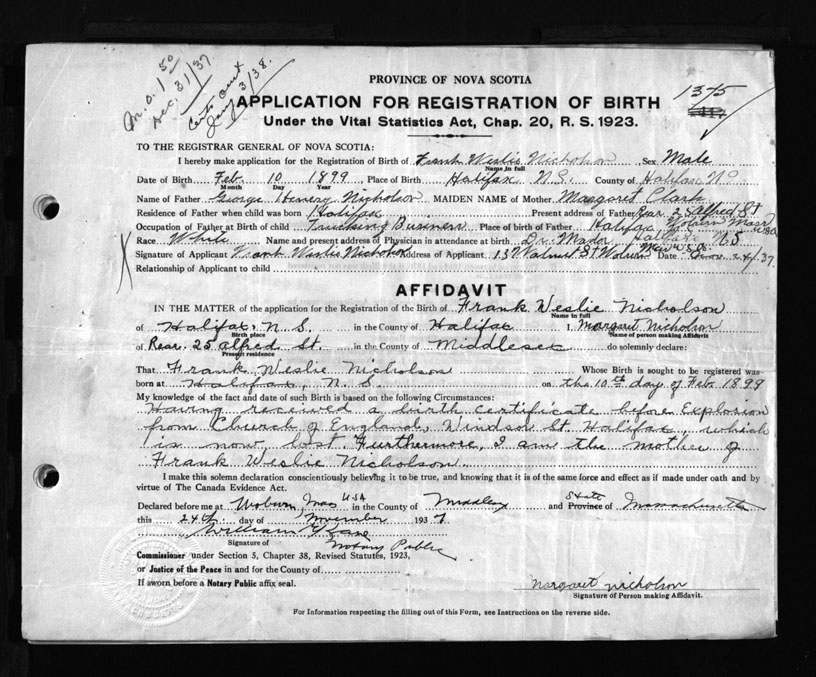 M.O. 1 50
Dec. 31/37
Certs sent
Jan 3/38.
PROVINCE OF NOVA SCOTIA
APPLICATION FOR REGISTRATION OF BIRTH
1375
Under the Vital Statistics Act, Chap. 20, R. S. 1923.
TO THE REGISTRAR GENERAL OF NOVA SCOTIA:
I hereby make application for the Registration of Birth of Frank Weslie Nicholson Sex Male
Name in full
Date of Birth Feb. 10 1899 Place of Birth Halifax N.S. County of Halifax
Month Day Year
Name of Father George Henery Nicholson MAIDEN NAME of Mother Margaret Clark
Residence of Father when child was born Halifax Present address of Father Rear 25 Alfred St
Occupation of Father at Birth of child Trucking Business Place of birth of Father Halifax Woburn Mass USA
Race White Name and present address of Physician in attendance at birth Dr. Mador Halifax NS
Signature of Applicant Frank Weslie Nicholson Address of Applicant 13 Walnut St Woburn Mass USA Date Nov 24/37.
Relationship of Applicant to child
AFFIDAVIT
IN THE MATTER of the application for the Registration of the Birth of Frank Weslie Nicholson
Name in full
of Halifax, N.S. in the County of Halifax I, Margaret Nicholson
Birth place Name of person making Affidavit
of Rear. 25 Alfred St. in the County of Middlesex do solemnly declare:
Present residence
That Frank Weslie Nicholson Whose Birth is sought to be registered was
born at Halifax, N.S. on the 10th day of Feb. 1899
My knowledge of the fact and date of such Birth is based on the following Circumstances:
Having received a birth certificate before Explosion
from Church of England, Windsor St. Halifax, which
is now lost. Furthermore, I am the mother of
Frank Weslie Nicholson.
I make this solemn declaration conscientiously believing it to be true, and knowing that it is of the same force and effect as if made under oath and by
virtue of The Canada Evidence Act.
Declared before me at Woburn, Mass USA in the County of Middlesex and State Province of Massachusetts
this 24th day of November 1937
William Keane
Signature of Notary Public
Commissioner under Section 5, Chapter 38, Revised Statutes, 1923,
or Justice of the Peace in and for the County of
If sworn before a Notary Public affix seal.
Margaret Nicholson
Signature of Person making Affidavit.
For Information respecting the filling out of this Form, see Instructions on the reverse side.